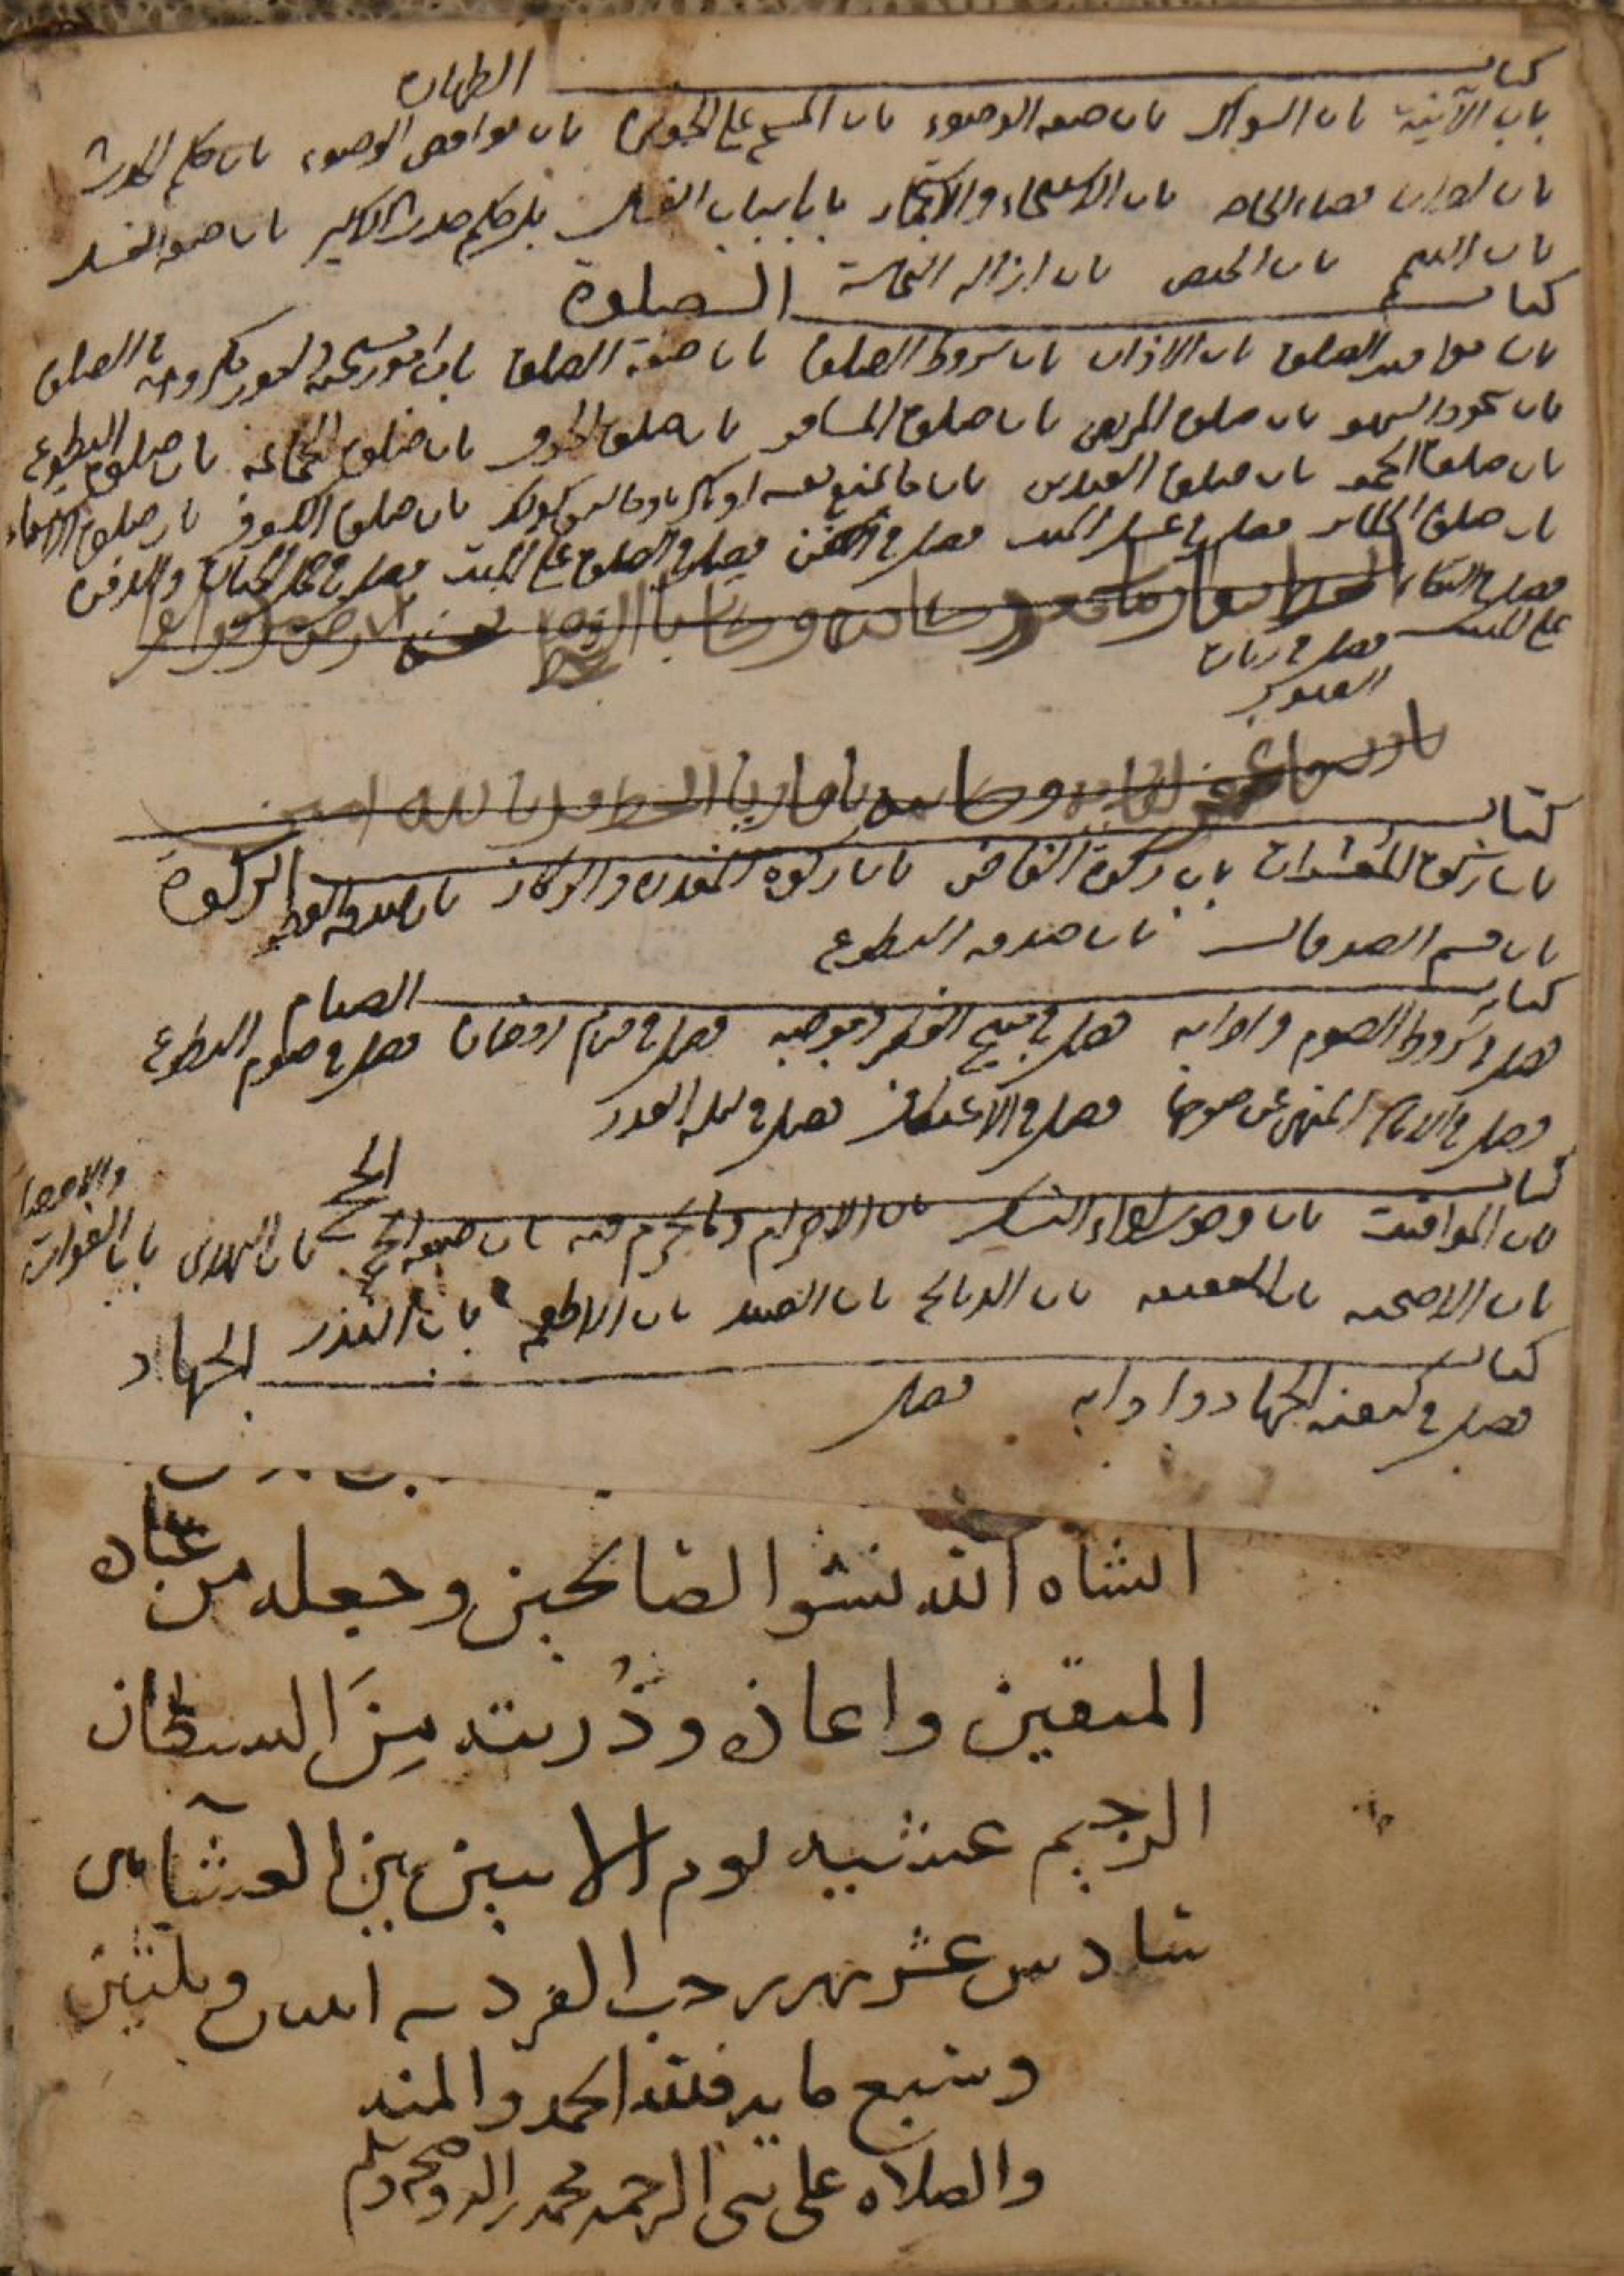 كتاب الطهارة
باب الآنية باب السواك باب صفة الوضوء باب المسح على الخفين باب نواقض الوضوء باب حكم الحدث
باب اداب قضاء الحاجة باب الاستنجاء والاستجمار باب اسباب الغسل باب حكم حدث الاكبر باب صفة الغسل
باب التيمم باب الحيض باب ازالة النجاسة
كتاب الصلوة
باب مواقيت الصلوة باب الاذان باب شروط الصلوة باب صفة الصلوة باب امور مستحبة وامور مكروهة في الصلوة
باب سجود السهو باب صلوة المريض باب صلوة المسافر باب صلوة الخوف باب صلوة الجماعة باب صلوة التطوع
باب صلوة الجمعة باب صلوة العيدين باب ما يمنع لبسه او يكره وما ليس كذلك باب صلوة الكسوف باب صلوة الاستسقاء
باب صلوة الجنائز فصل في غسل الميت فصل في الكفن فصل في الصلوة على الميت فصل في حمل الجنازة والدفن
فصل في البكاء
على الميت فصل في زيارة
القبور
كتاب الزكوة
باب زكوة المعشرات باب زكوة الناض باب زكوة المعدن والركاز باب صدقة الفطر
باب قسم الصدقات باب صدقة التطوع
كتاب الصيام
فصل في شروط الصوم وادابه فصل في مبيح الفطر وموجبه فصل في قيام رمضان فصل في صوم التطوع
فصل في الايام المنهي عن صومها فصل في الاعتكاف فصل في ليلة القدر
كتاب الحج
باب المواقيت باب وجوه اداء النسك باب الاحرام وما يحرم فيه باب صفة الحج باب الهدي باب الفوات والاحصار
باب الاضحية باب العقيقة باب الذبائح باب الصيد باب الاطعمة باب النذر
كتاب الجهاد
فصل في كيفية الجهاد وادابه فصل
انشاه الله نشو الصالحين وجعله من عباده
المتقين واعاذه وذريته مِنَ الشيطان
الرجيم عشية يوم الاثنين بين العشآين
سادس عشر شهر رجب الفرد سنة اثنين وثلثين
وسبع ماية فلله الحمد والمنه
والصلاه على نبي الرحمه محمد واله وصحبه وسلم